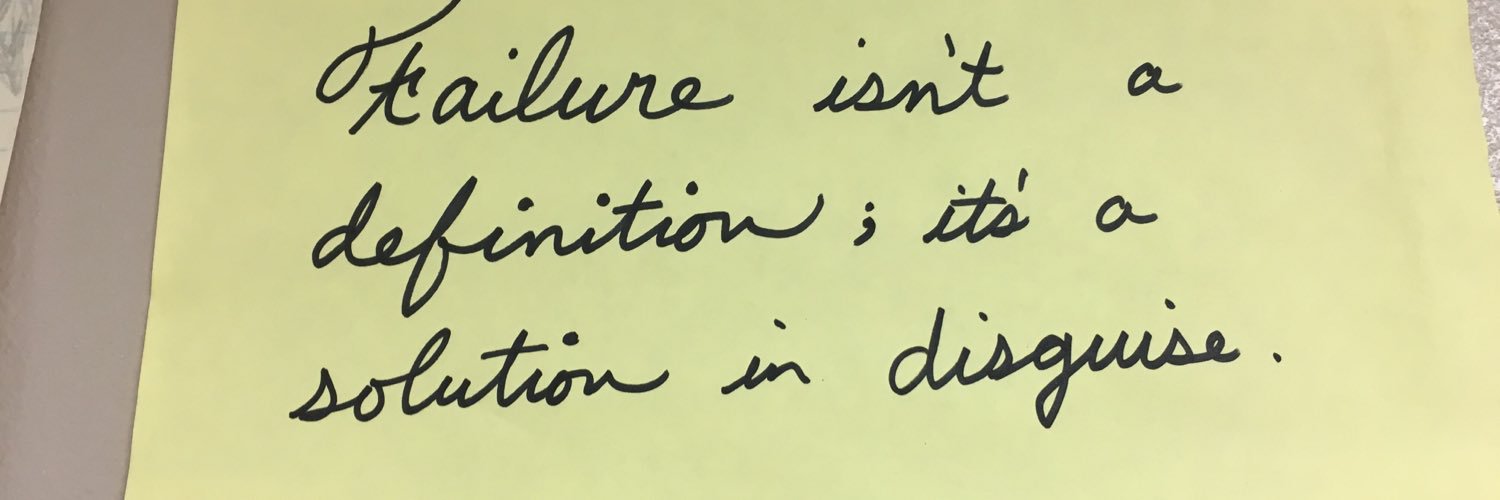 Failure isn't a
definition; it's a
solution in disguise.